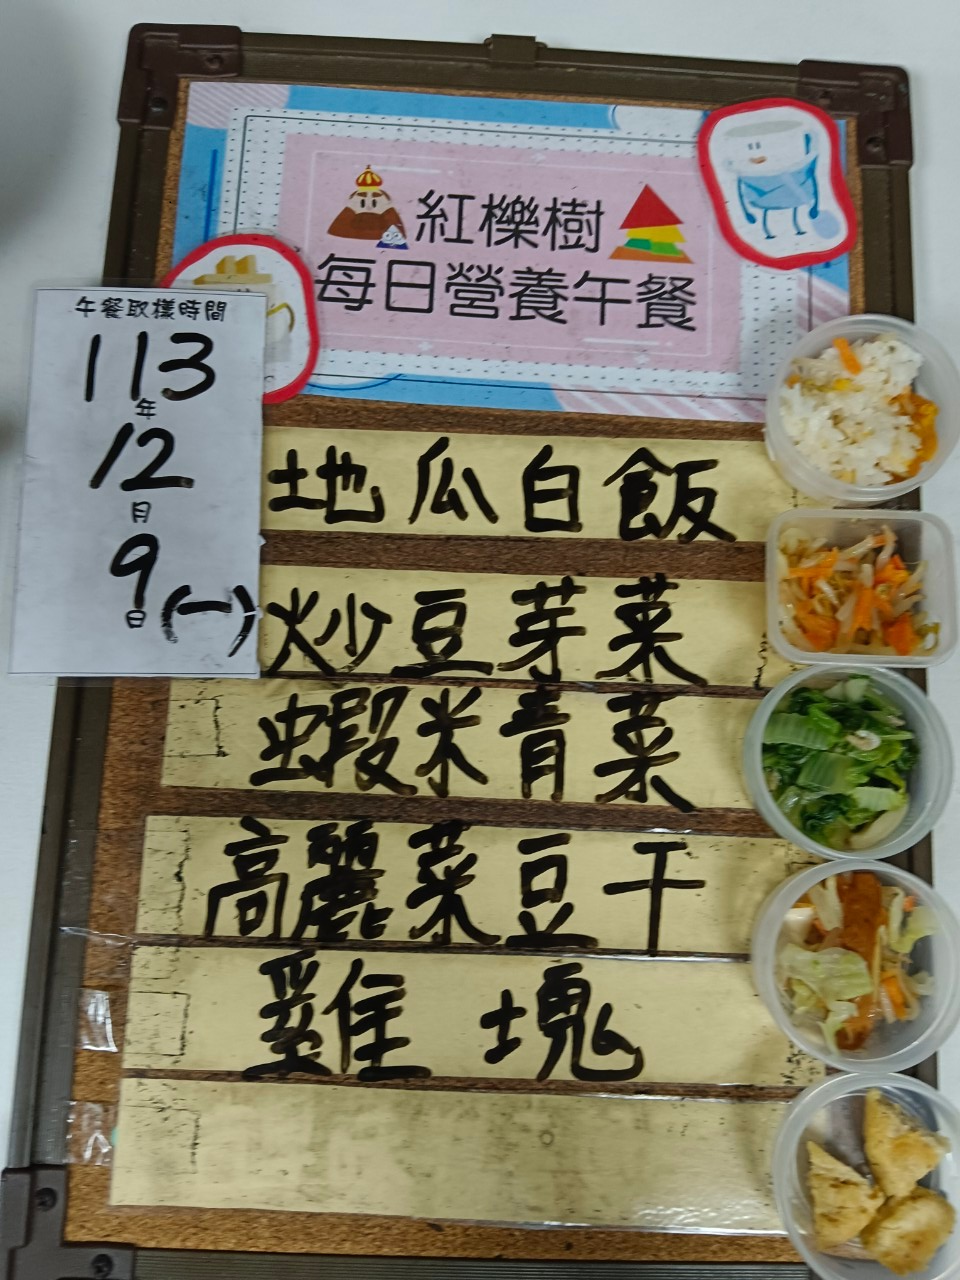 紅櫟樹
每日營養午餐
午餐取樣時間
113
年
12
月
9
日(一)
地瓜白飯
炒豆芽菜
蝦米青菜
高麗菜豆干
雞塊